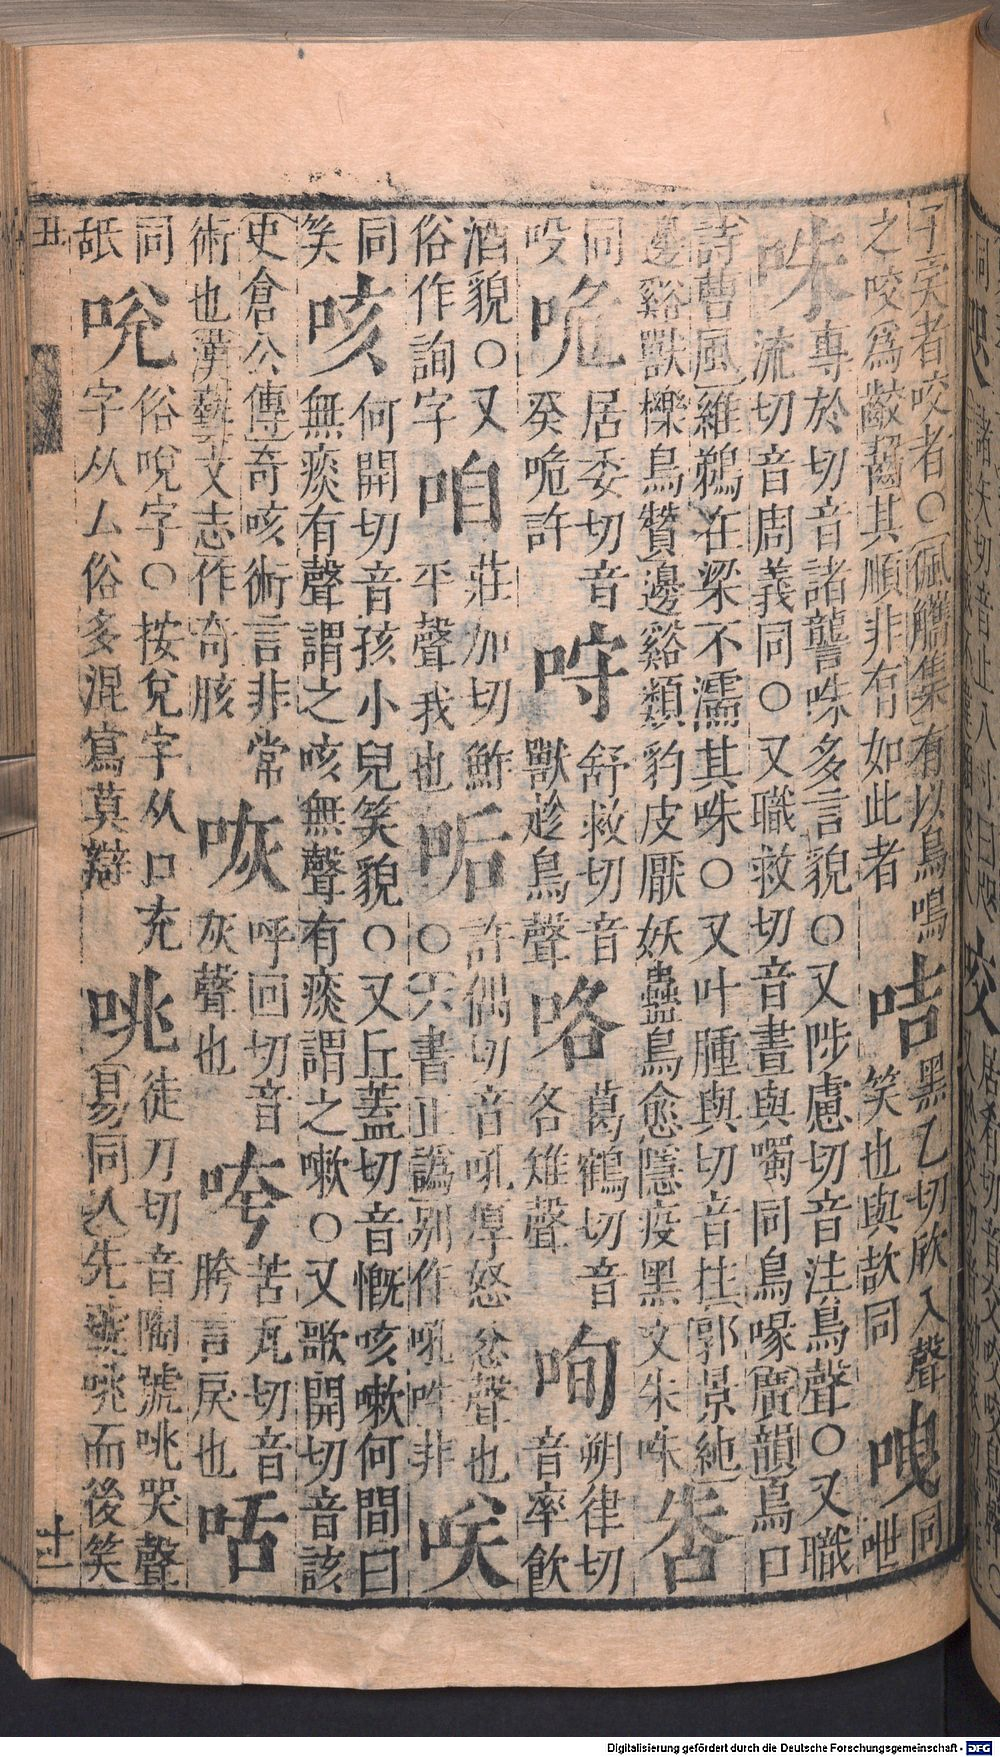 子宎者咬者○佩觿集有以鳥鳴
之咬爲齩齧其順非有如此者
咭
黑乙切欣入聲
笑也與欯同
同
呭
咮
專於切音諸讋咮多言貌○又陟慮切音注鳥聲○又職
流切音周義同○又職救切音晝與噣同鳥喙廣韻鳥口
詩曹風維鵜在梁不濡其咮○又叶腫與切音拄郭景純
邊谿獸櫟鳥贊邊谿類豹皮厭妖蠱鳥愈隱疫黑文朱咮
同
吺
居委切音
癸 許
舒救切音
獸趂鳥聲
咯
葛鶴切音
各雉聲
咰
朔律切
音率飲
酒貌○又
俗作詢字
咱
莊加切鮓
平聲我也
㖃
許偶切音吼厚怒忿聲也
○六書正譌別作吼吽非
咲
同
笑
咳
何開切音孩小兒笑貌○又丘蓋切音慨咳嗽何間曰
無痰有聲謂之咳無聲有痰謂之嗽○又歌開切音該
史倉公傳奇咳術言非常
術也漢藝文志作奇胲
咴
呼回切音
灰聲也
咵
苦瓦切音
胯言戾也
咶
同
舐
哾
俗哾字○按兌字从口充
字从厶俗多混寫莫辯
咷
徒刀切音陶號咷哭聲
易同人先號咷而後笑
丑
十二
Digitalisierung gefördert durch die Deutsche Forschungsgemeinschaft - DFG